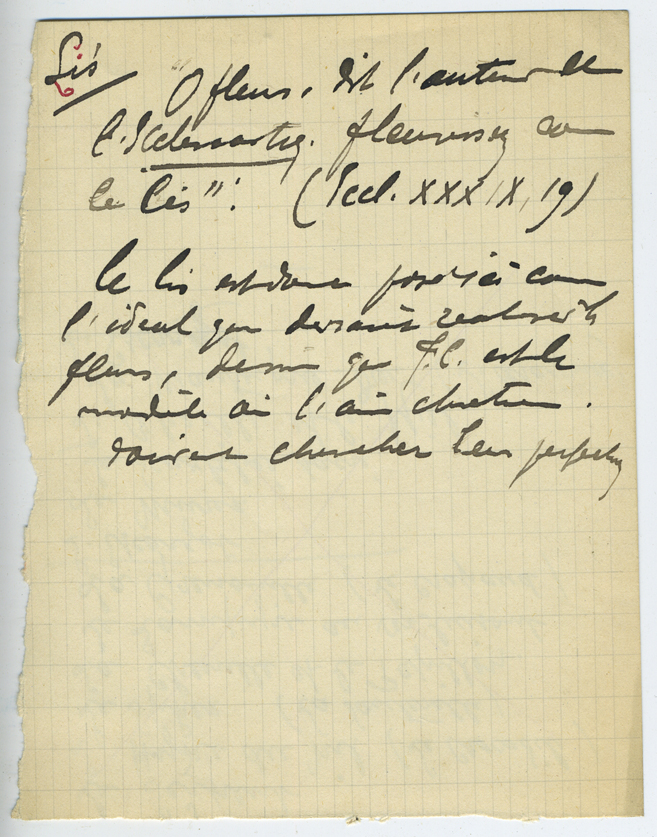 Lis
"O fleurs, dit l'auteur de
l'Ecclesiastiq. fleurissez com
le lis". (Eccl. XXXIX, 19)
le lis est donc posé ici com
l'ideal que devraient realiser les
fleurs, de que J.C. est le
modèle où l'am chretien.
doivent chercher leur perfection